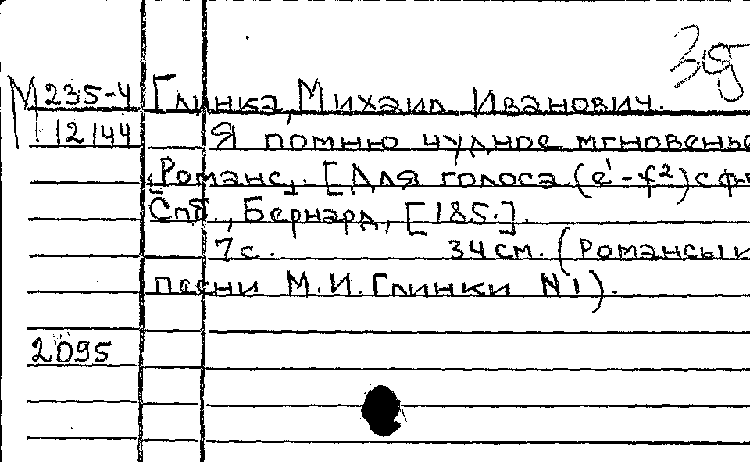 М 235-4 Глинка, Михаил Иванович.
12144 Я помню чудное мгновенье
Романс. [Для голоса (e¹-f²) с ф
Спб., Бернард, [185.].
7 с. 34 см. (Романсы и
песни М.И. Глинки N 1).
2095